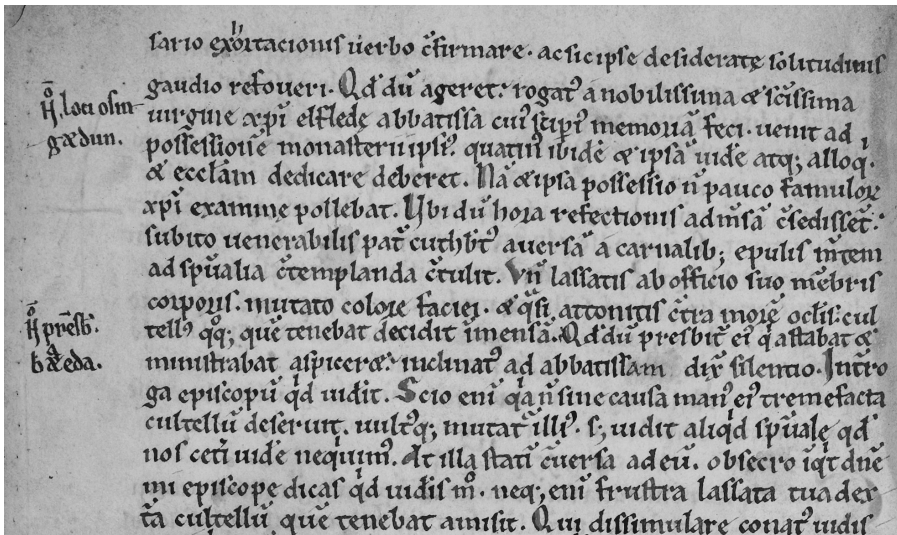 sario exhortacionis uerbo c̄firmare. ac sic ipse desideratę solitudinis
gaudio refoueri. Qd̄ dū ageret: rogat᷒ a nobilissima & sc̄issima
uirgine xp̄i elflede abbatissa cui᷒ sup̄i᷒ memoriā feci. uenit ad
possessionē monasterii ipsi᷒. quatin᷒ ibidē & ipsā uidē atq; alloq̇.
& eccl̄am dedicare deberet. Nā & ipsa possessio n̄ pauco famuloꝝ
xp̄i examine pollebat. Vbi dū hora refectionis ad m̄sā c̄sedisset:
subito uenerabilis pat̄ cuthb̄t᷒ auersā a carnalib; epulis m̄tem
ad sp̄ualia c̄templanda c̄tulit. Vn̄ lassatis ab officio suo m̄bris
corporis. mutato colore faciei. & q̇si attonitis c̄tra morē oclīs: cul
tell᷒ qq̇; quē tenebat decidit ī mensā. Qd̄ dū presbit̄ ei᷒ q̇ astabat &
ministrabat aspiceret: inclinat᷒ ad abbatissam dix̄ silentio. Int̄ro
ga episcopū q̇d uidit. Scio enī q̇a n̄ sine causa man᷒ ei᷒ tremefacta
cultellū deseruit. uult᷒q; mutat̄ illi᷒. s; uidit aliq̇d sp̄uale qd̄
nos cet̄i uidē neq̇uim᷒. At illa statī c̄uersa ad eū. obsecro īq̇t dn̄e
mi episcope dicas q̇d uidis m̊. neq; enī frustra lassata tua dex
t̄a cultellū quē tenebat amisit. Qui dissimulare conat᷒ uidis
H̊. loci osin
gædun.
H̊ pres̄b.
bæda.